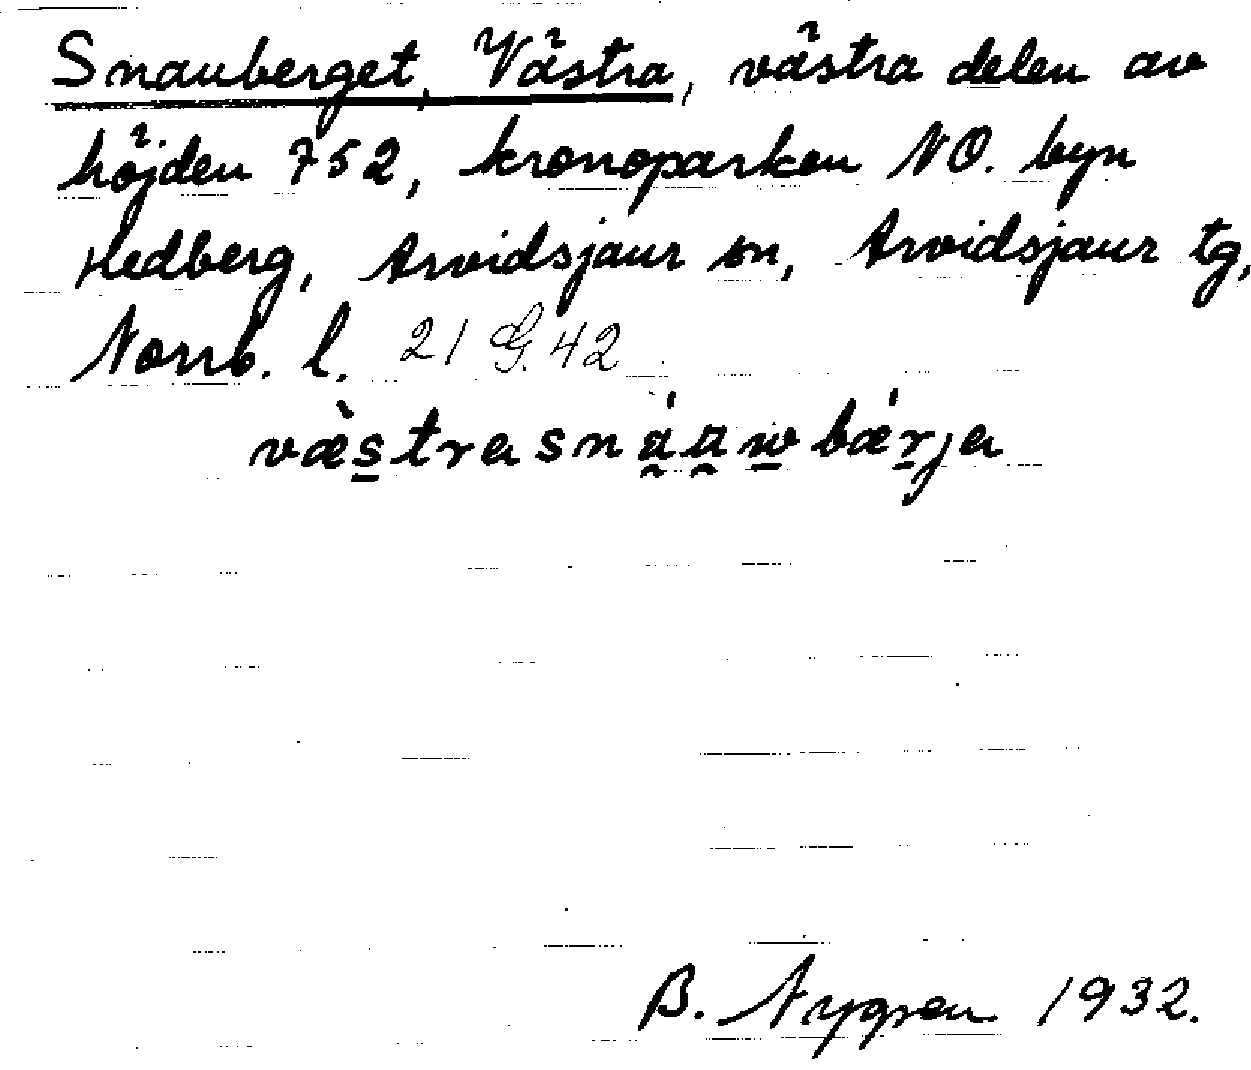 Snauberget, Västra, västra delen av
höjden 752, kronoparken NO. byn
Hedberg, Arvidsjaur sn, Arvidsjaur tg,
Norrb. l. 21 G. 42
væ̀s̲tra sná̯a̯w̲bǽr̲ja
B. Nygren 1932.